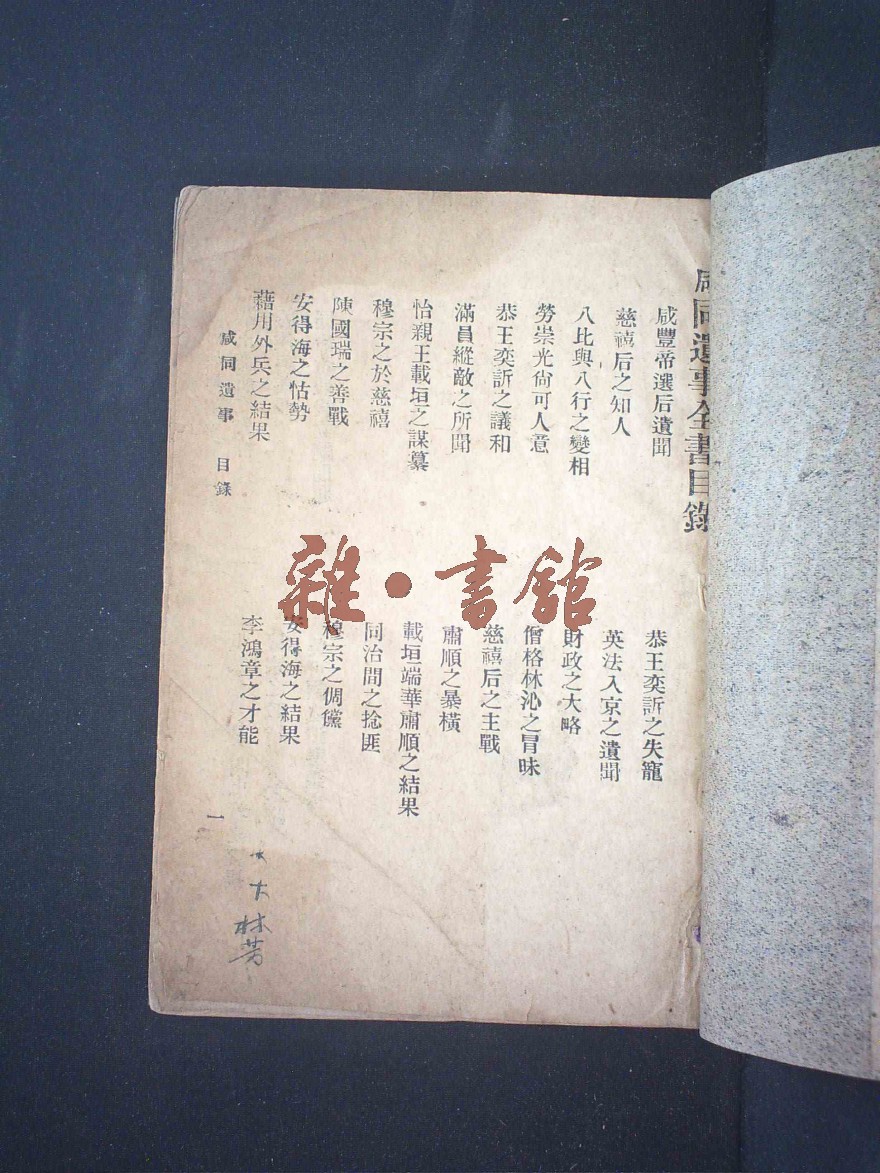 咸同遺事全書目錄
咸豐帝選后遺聞
恭王奕訢之失寵
慈禧后之知人
英法入京之遺聞
八比與八行之變相
財政之大略
勞崇光尙可人意
僧格林沁之冒昧
恭王奕訢之議和
慈禧后之主戰
滿員縱敵之所聞
肅順之暴橫
怡親王載垣之謀纂
載垣端華肅順之結果
穆宗之於慈禧
同治間之捻匪
陳國瑞之善戰
穆宗之倜儻
安得海之怙勢
安得海之結果
藉用外兵之結果
李鴻章之才能
咸同遺事 目錄
一
林芳
雜·書館